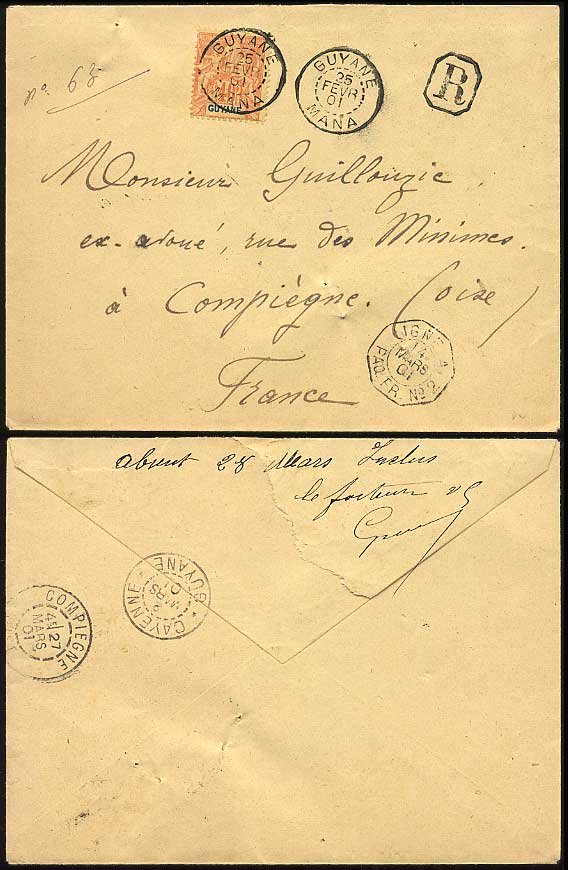 GUYANE
25
FEVR
01
MANA
GUYANE
GUYANE
25
FEVR
01
MANA
R
n° 63
Monsieur Guillouzic
ex-avoué, rue des Minimes.
à Compiègne. (Oise)
France
LIGNE
14
MARS
01
PAQ. FR. No 2
absent 28 Mars Inclus
le facteur
CAYENNE
MARS
01
GUYANE
COMPIEGNE
27
MARS
01